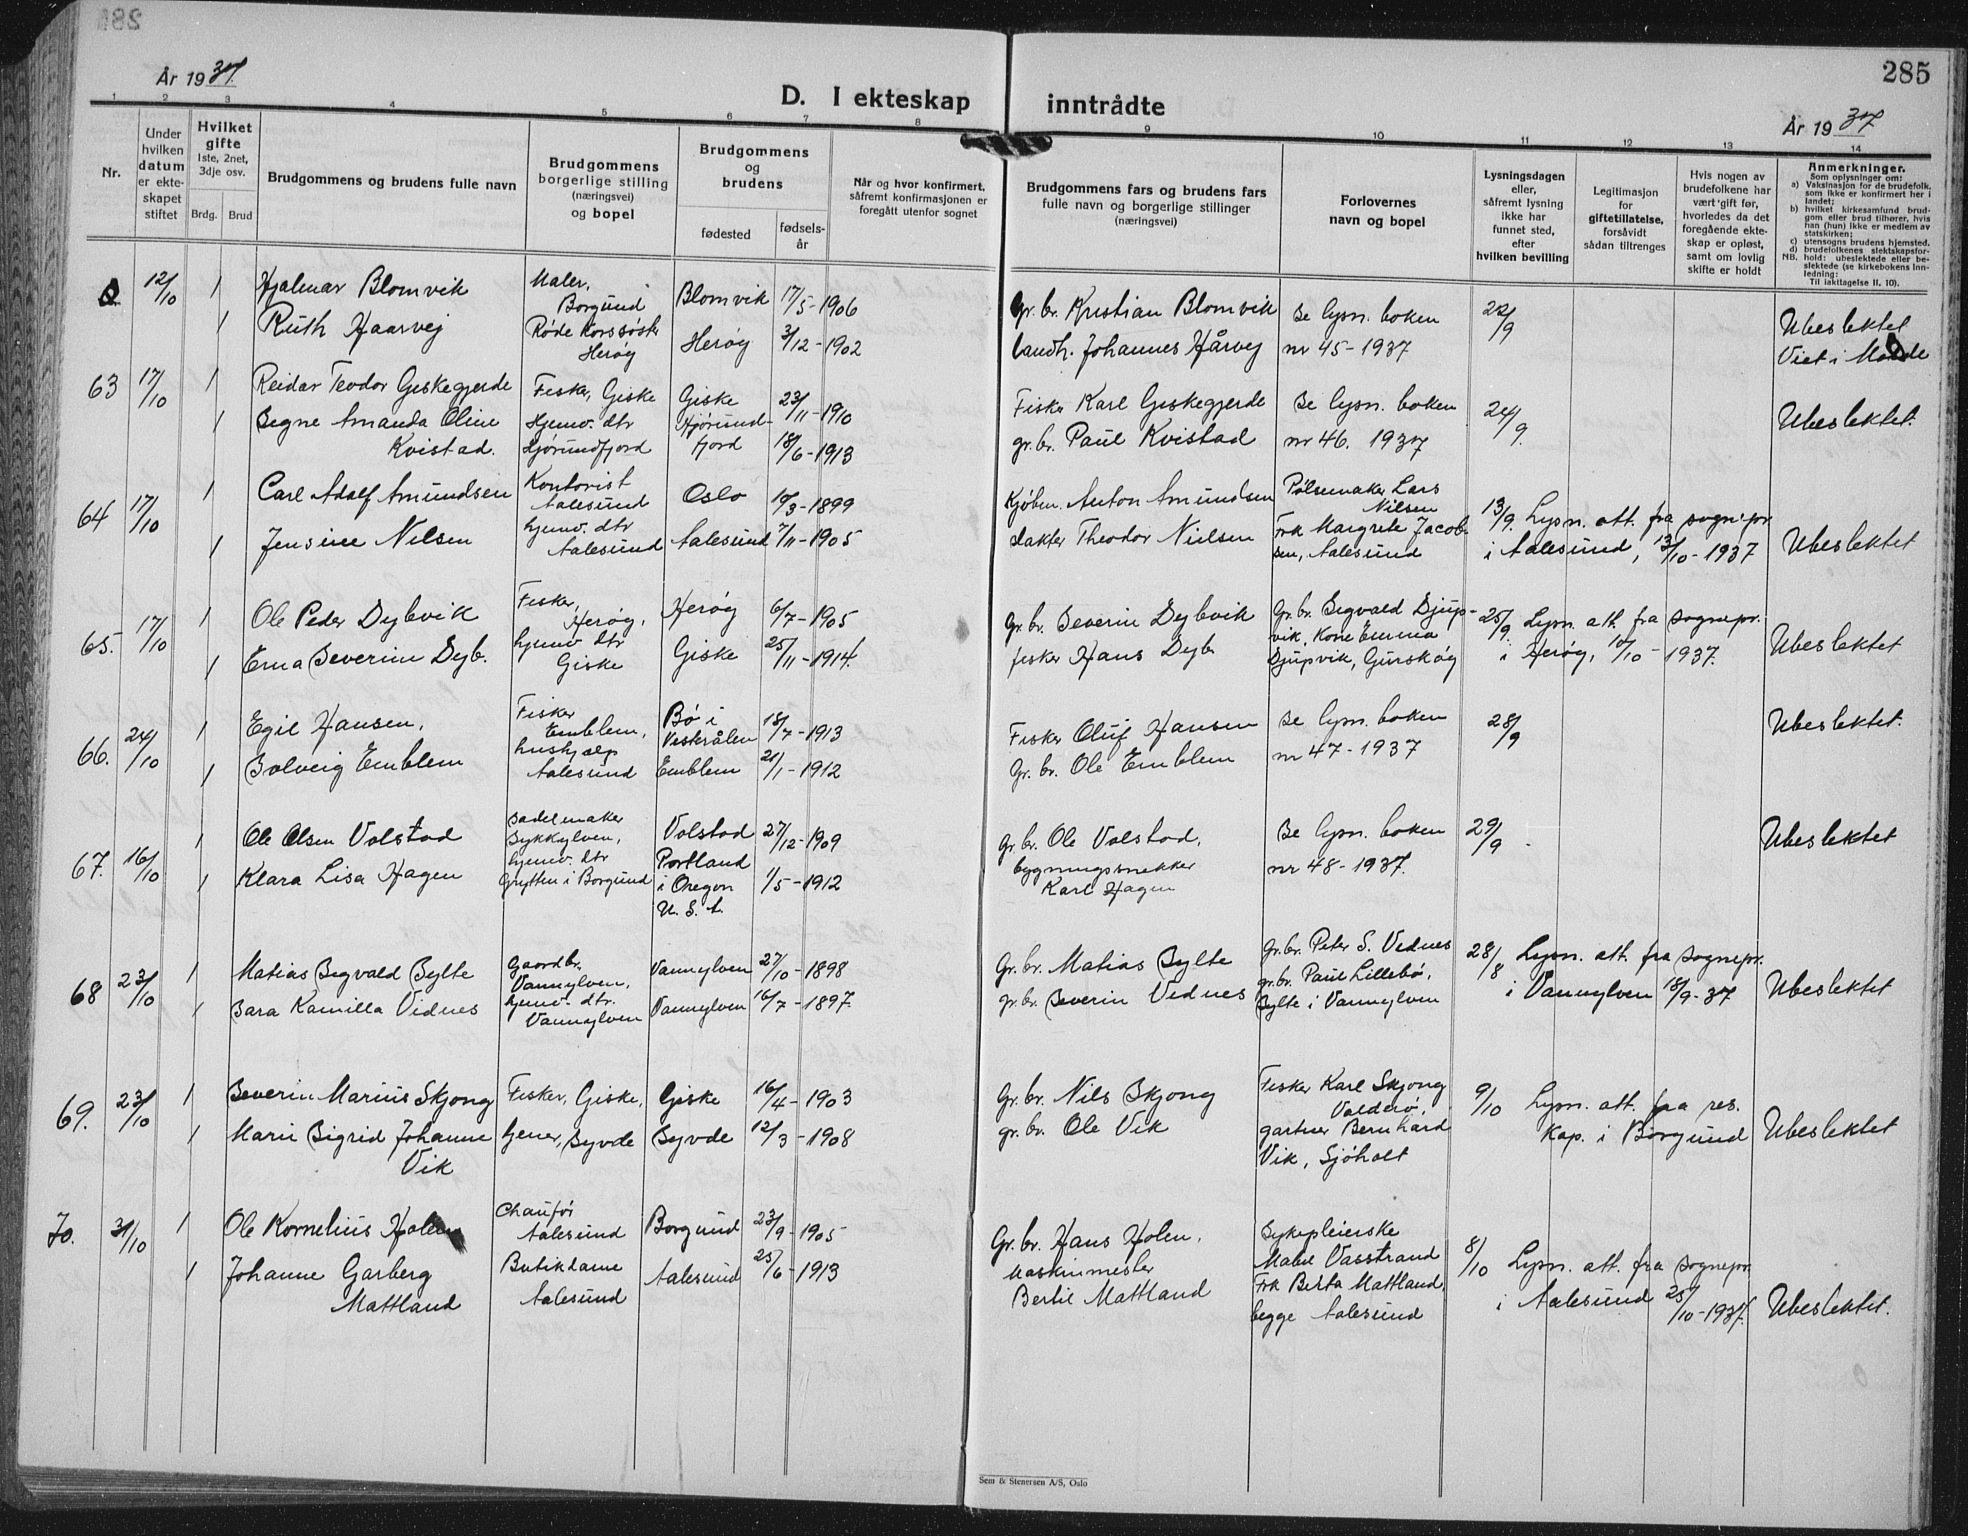 285
År 1937.
D. I ekteskap inntrådte
År 1937
1 2 3 4 5 6 7 8 9 10 11 12 13 14
Nr.
Under hvilken datum er ekteskapet stiftet
Hvilket gifte
1ste, 2net, 3dje osv.
Brdg. Brud
Brudgommens og brudens fulle navn
Brudgommens borgerlige stilling (næringsvei) og bopel
Brudgommens og brudens
fødested
fødselsår
Når og hvor konfirmert, såfremt konfirmasjonen er foregått utenfor sognet
Brudgommens fars og brudens fars fulle navn og borgerlige stillinger (næringsvei)
Forlovernes navn og bopel
Lysningsdagen eller, såfremt lysning ikke har funnet sted, efter hvilken bevilling
Legitimasjon for giftetillatelse, forsåvidt sådan tiltrenges
Hvis nogen av brudefolkene har vært gift før, hvorledes da det foregående ekteskap er opløst, samt om lovlig skifte er holdt
Anmerkninger.
Som oplysninger om:
a) Vaksinasjon for de brudefolk, som ikke er konfirmert her i landet;
b) hvilket kirkesamfund brudgom eller brud tilhører, hvis han (hun) ikke er medlem av statskirken;
c) utensogns brudens hjemsted.
d) brudefolkenes slektskapsforhold: ubeslektede eller beslektede (se kirkebokens Innledning:
NB. Til iakttagelse II. 10).
12/10 1 Hjalmar Blomvik Maler, Borgund Blomvik 17/5-1906 Gr. br. Kristian Blomvik Se lysn. boken 22/9 Ubeslektet
1 Ruth Haarvej Røde Korssøster Herøy Herøy 3/12-1902 landh. Johannes Hårvej nr 45-1937 Viet i Molde
63 17/10 1 Reidar Teodor Geskegjerde Fisker, Giske Giske 23/11-1910 Fisker Karl Geskegjerde Se lysn. boken 24/9. Ubeslektet.
1 Segne Amanda Oline Kvistad. Hjemv. dtr Hjørundfjord Hjørundfjord 18/6-1913 gr. br. Paul Kvistad nr 46. 1937
64 17/10 1 Carl Adolf Amundsen Kontorist Aalesund Oslo 10/3-1899 Kjøbm. Anton Amundsen Pølsemaker Lars Nilsen 13/9. Lysn. att. fra sognepr.
1 Jensine Nilsen hjemv. dtr Aalesund Aalesund 7/11-1905 slakter Theodor Nielsen Frk Margrete Jacobsen, Aalesund i Aalesund, 13/10-1937 Ubeslektet
65. 17/10 1 Ole Peder Dybvik Fisker, Herøy, Herøy 6/7-1905 gr. br. Severin Dybvik Gr. br. Sigvald Djupvik, Kone Emma 25/9. Lysn. att. fra sognepr.
1 Erna Severine Dyb. hjemv. dtr Giske Giske 25/11-1914. fisker Hans Dyb Djupvik, Gurskøy i Herøy, 10/10-1937. Ubeslektet
66. 24/10 1 Egil Hansen, Fisker Emblem, Bø i Vesterålen 18/7-1913 Fisker Oluf Hansen Se lysn. boken 28/9 Ubeslektet.
1 Solveig Emblem hushjelp Aalesund Emblem 21/1-1912 Gr. br. Ole Emblem nr 47-1937
67. 16/10 1 Ole Olsen Volstad Sadelmaker Sykkylven, Volstad 27/12-1909 gr. br. Ole Volstad, Se lysn. boken 29/9 Ubeslektet
1 Klara Lisa Hagen hjemv. dtr Grytten i Borgund Portland i Oregon U. S. A. 1/5-1912 bygningssnekker Karl Hagen nr 48-1937.
68 23/10 1 Matias Sigvald Sylte Gaardbr. Vannylven, Vannylven 27/10-1898 Gr. br. Matias Sylte Gr. br. Peter S. Vednes 28/8 Lysn. att. fra sognepr.
1 Sara Kamilla Vidnes hjemv. dtr. Vannylven Vannylven 16/7-1897. gr. br. Severin Vednes gr. br. Paul Lillebø, Sylte i Vannylven i Vannylven 18/9-37 Ubeslektet
69. 23/10 1 Severin Marius Skjong Fisker, Giske, Giske 16/4-1903 Gr. br. Nils Skjong Fisker Karl Skjong Valderø, 9/10 Lysn. att. fra res.
1 Marie Sigrid Johanne Vik hjemv, Syvde Syvde 12/3-1908 gr. br. Ole Vik gartner Bernhard Vik, Sjøholt Kap. i Borgund Ubeslektet
70. 31/10 1 Ole Kornelius Holen Chaufør Aalesund Borgund 23/9-1905 Gr. br. Hans Holen, Sykepleierske Mabel Vasstrand 8/10 Lysn. att. fra sognepr.
1 Johanne Garberg Mattland Butikdame Aalesund Aalesund 25/6-1913 Maskinmester Bertil Mattland Frk Berta Mattland, begge Aalesund i Aalesund 25/10-1937. Ubeslektet.
Sem & Stenersen A/S, Oslo